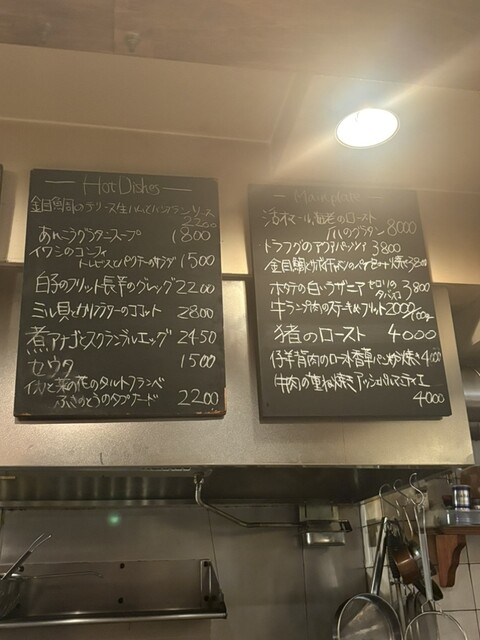 Hot Dishes
金目鯛のテリーヌ生ハム
ソース
2220
あんこうグラタンスープ 1800
イワシのコンフィ
トレビスとパクチーのサラダ 1500
白子のフリット長芋のグレッグ 2200
ミル貝とカリフラワーのココット 2800
煮アナゴとスクランブルエッグ 2450
セウタ 1500
イカと菜の花のタルトフランベ
ふきのとうのタプナード 2200
Mainplate
活オマール海老のロースト
爪のグラタン 8000
トラフグのアクアパッツァ 3800
金目鯛と
ホタテの白いラザニア 3800
セロリの
牛ランプ肉のステーキ フリット 2000/100g
猪のロースト 4000
仔羊背肉のロースト香草パン粉焼き 4100
牛肉の重ね焼き アッシパルマンティエ
4000